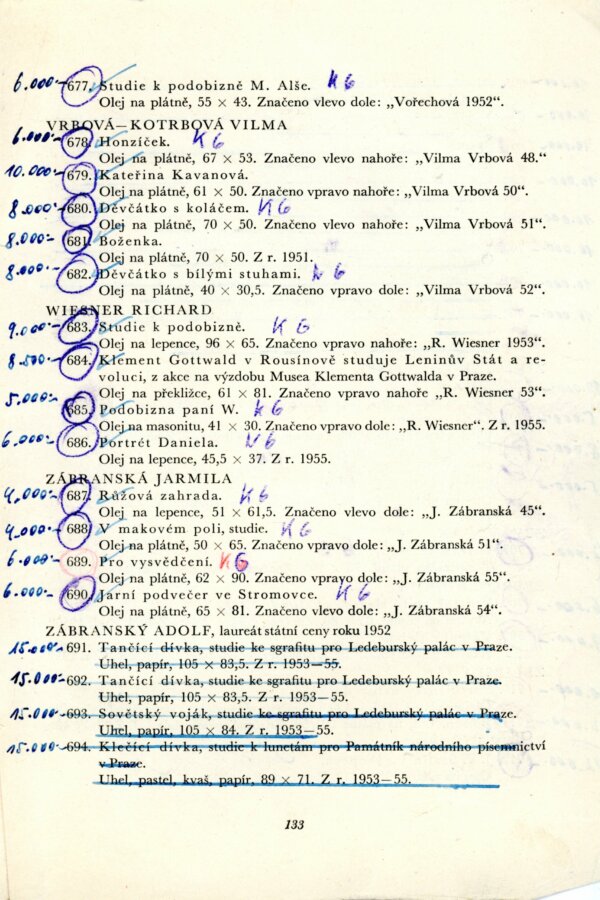 6.000.- 677. Studie k podobizně M. Alše. K6
Olej na plátně, 55 × 43. Značeno vlevo dole: „Vořechová 1952“.
VRBOVÁ—KOTRBOVÁ VILMA
6.000.- 678. Honzíček. K6
Olej na plátně, 67 × 53. Značeno vlevo nahoře: „Vilma Vrbová 48.“
10.000.- 679. Kateřina Kavanová.
Olej na plátně, 61 × 50. Značeno vpravo nahoře: „Vilma Vrbová 50“.
8.000.- 680. Děvčátko s koláčem. K6
Olej na plátně, 70 × 50. Značeno vlevo nahoře: „Vilma Vrbová 51“.
8.000.- 681. Boženka.
Olej na plátně, 70 × 50. Z r. 1951.
8.000.- 682. Děvčátko s bílými stuhami. K6
Olej na plátně, 40 × 30,5. Značeno vpravo dole: „Vilma Vrbová 52“.
WIESNER RICHARD
9.000.- 683. Studie k podobizně. K6
Olej na lepence, 96 × 65. Značeno vpravo nahoře: „R. Wiesner 1953“.
8.500.- 684. Klement Gottwald v Rousínově studuje Leninův Stát a re-
voluci, z akce na výzdobu Musea Klementa Gottwalda v Praze.
Olej na překližce, 61 × 81. Značeno vpravo nahoře „R. Wiesner 53“.
5.000.- 685. Podobizna paní W. K6
Olej na masonitu, 41 × 30. Značeno vpravo dole: „R. Wiesner“. Z r. 1955.
6.000.- 686. Portrét Daniela. K6
Olej na lepence, 45,5 × 37. Z r. 1955.
ZÁBRANSKÁ JARMILA
4.000.- 687. Růžová zahrada. K6
Olej na lepence, 51 × 61,5. Značeno vlevo dole: „J. Zábranská 45“.
4.000.- 688. V makovém poli, studie. K6
Olej na plátně, 50 × 65. Značeno vpravo dole: „J. Zábranská 51“.
6.000.- 689. Pro vysvědčení. K6
Olej na plátně, 62 × 90. Značeno vpravo dole: „J. Zábranská 55“.
6.000.- 690. Jarní podvečer ve Stromovce. K6
Olej na plátně, 65 × 81. Značeno vlevo dole: „J. Zábranská 54“.
ZÁBRANSKÝ ADOLF, laureát státní ceny roku 1952
15.000.- 691. Tančící dívka, studie ke sgrafitu pro Ledeburský palác v Praze.
Uhel, papír, 105 × 83,5. Z r. 1953—55.
15.000.- 692. Tančící dívka, studie ke sgrafitu pro Ledeburský palác v Praze.
Uhel, papír, 105 × 83,5. Z r. 1953—55.
15.000.- 693. Sovětský voják, studie ke sgrafitu pro Ledeburský palác v Praze.
Uhel, papír, 105 × 84. Z r. 1953—55.
15.000.- 694. Klečící dívka, studie k lunetám pro Památník národního písemnictví
v Praze.
Uhel, pastel, kvaš, papír, 89 × 71. Z r. 1953—55.
133